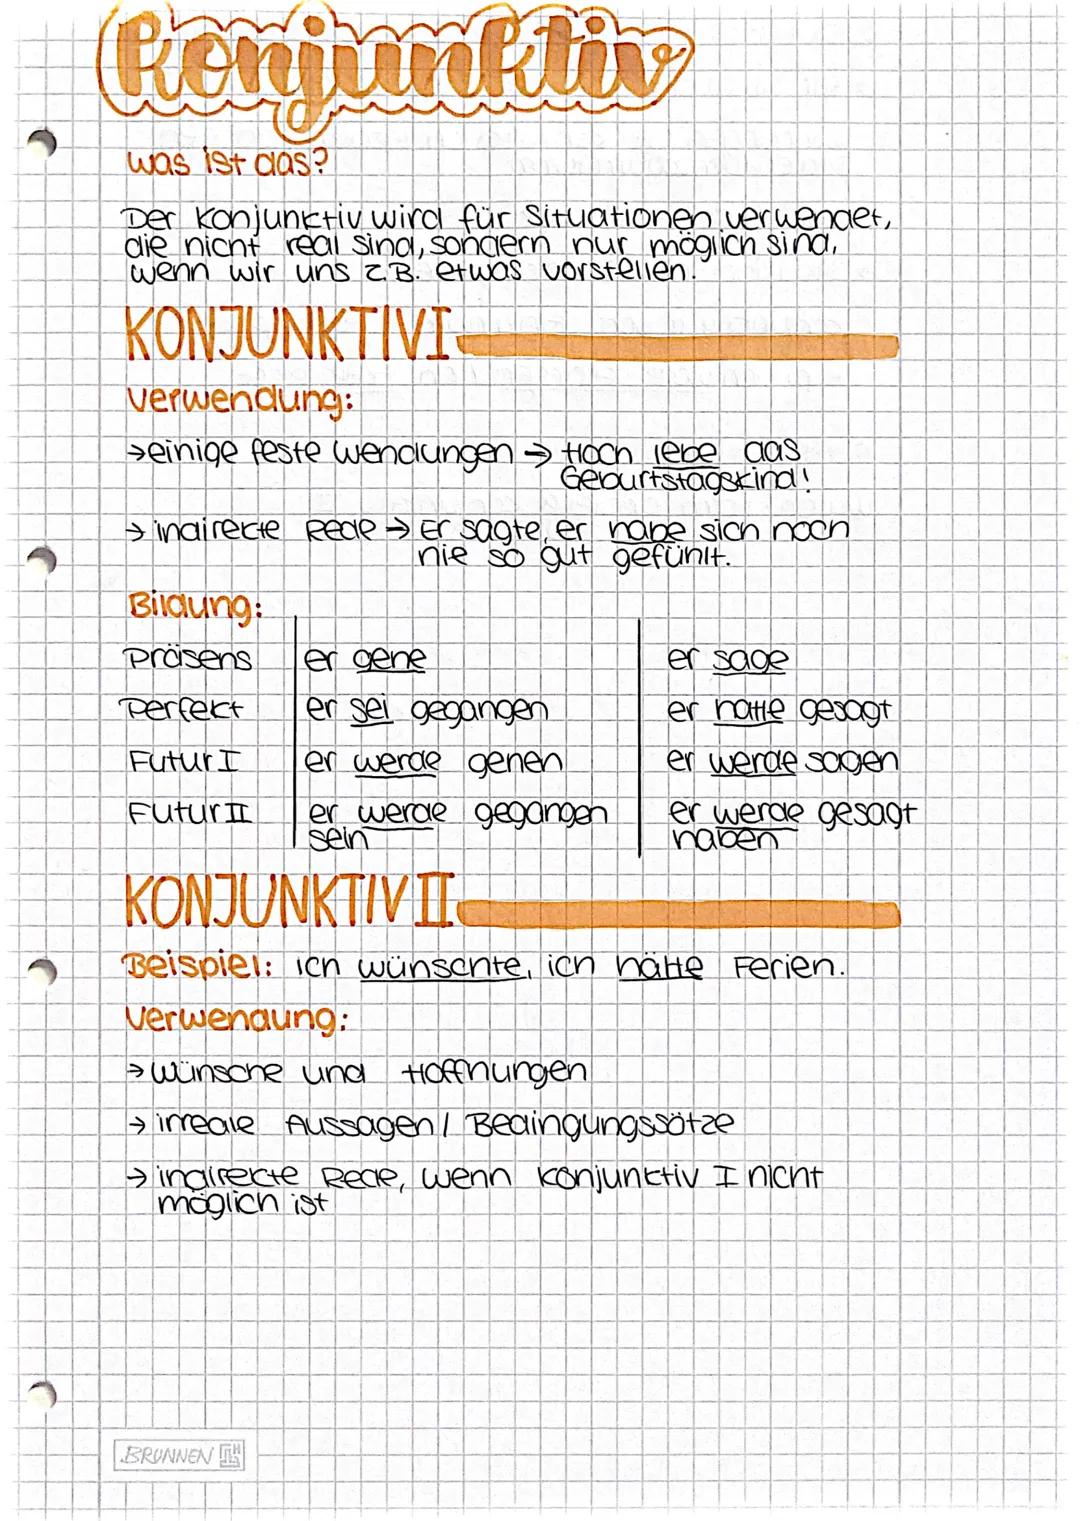 Konjunktiv
was ist das?
Der Konjunktiv wird für Situationen verwendet,
die nicht real sind, sondern nur möglich sind,
wenn wir uns z.B. etwas vorstellen.
KONJUNKTIV I
Verwendung:
→ einige feste Wendungen → Hoch lebe das
Geburtstagskind!
→ indirekte Rede → Er sagte, er habe sich noch
nie so gut gefühlt.
Bildung:
Präsens er gehe er sage
Perfekt er sei gegangen er hatte gesagt
Futur I er werde gehen er werde sagen
Futur II er werde gegangen er werde gesagt
sein haben
KONJUNKTIV II
Beispiel: ich wünschte, ich hätte Ferien.
Verwendung:
→ Wünsche und Hoffnungen
→ irreale Aussagen / Bedingungssätze
→ indirekte Rede, wenn Konjunktiv I nicht
möglich ist
BRUNNEN